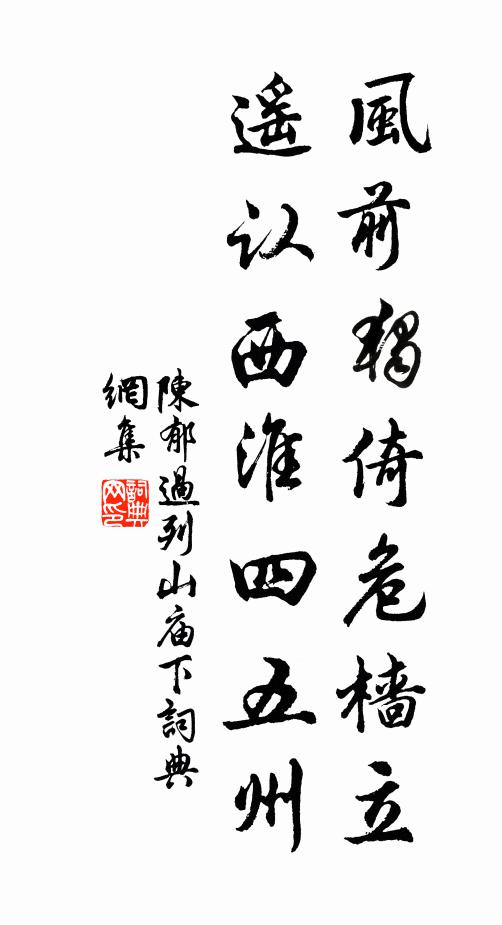 風前獨倚危檣立
遥认西淮四五州
陳郁過列山庙下詞典
網集
詞典
网印